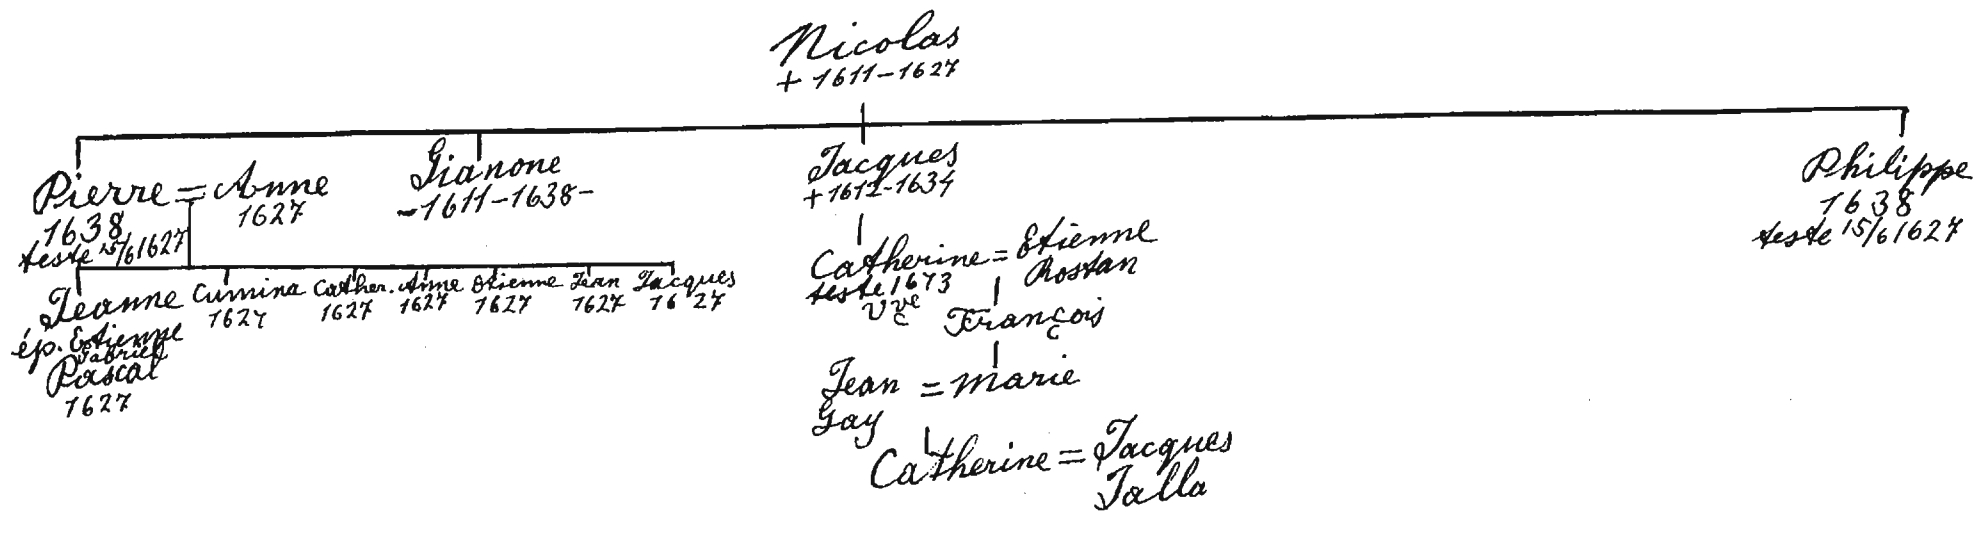 Nicolas
+ 1611-1627
Pierre = Anne
1638
teste 15/6 1627
1627
Gianone
-1611-1638-
Jacques
+ 1612-1634
Philippe
1638
teste 15/6 1627
Jeanne
ép. Etienne
Gabriel
Pascal
1627
Cumina
1627
Cather.
1627
Anne
1627
Etienne
1627
Jean
1627
Jacques
1627
Catherine = Etienne
Rostan
teste 1673
vve
François
Jean = Marie
Gay
Catherine = Jacques
Jalla